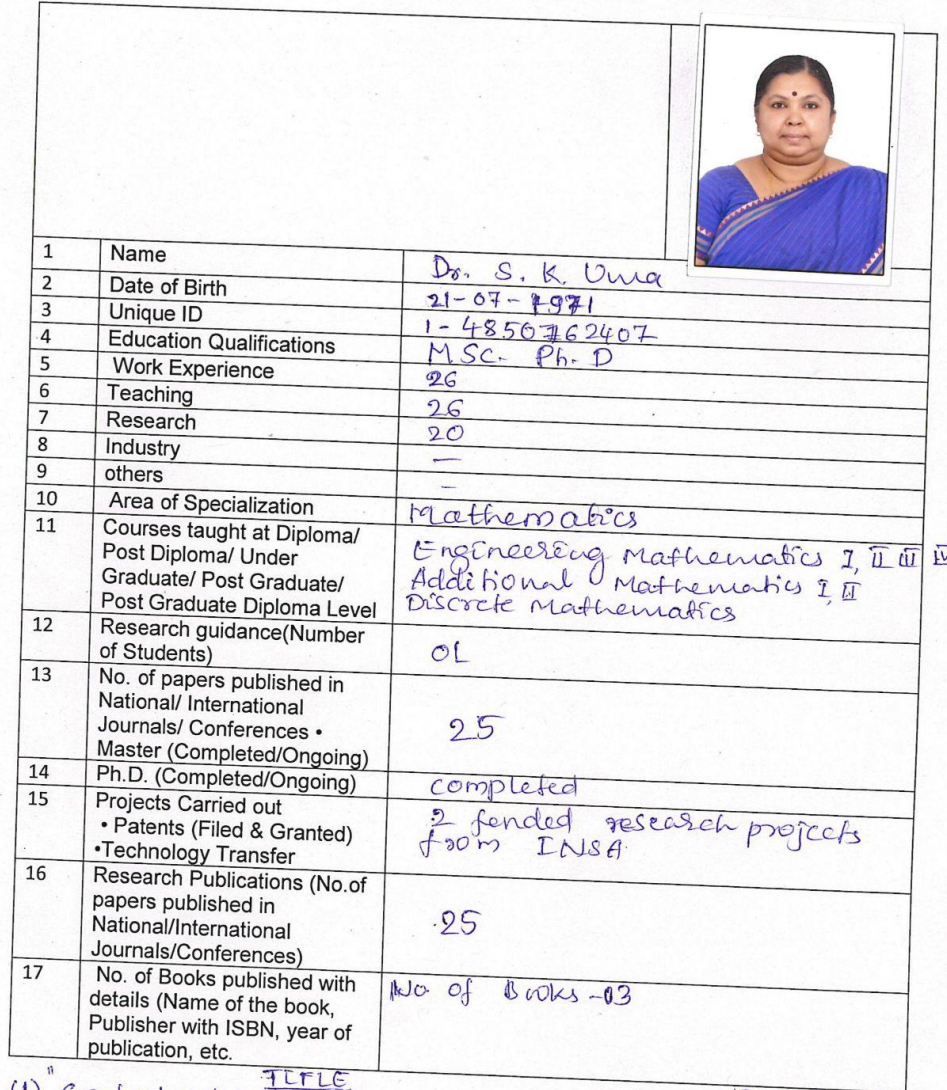 1 Name Dr. S. K. Uma
2 Date of Birth 21-07-1971
3 Unique ID 1-4850762407
4 Education Qualifications MSc. Ph. D
5 Work Experience 26
6 Teaching 26
7 Research 20
8 Industry —
9 others —
10 Area of Specialization Mathematics
11 Courses taught at Diploma/
Post Diploma/ Under
Graduate/ Post Graduate/
Post Graduate Diploma Level
Engineering Mathematics I, II III IV
Additional Mathematics I, II
Discrete Mathematics
12 Research guidance(Number
of Students)
01
13 No. of papers published in
National/ International
Journals/ Conferences •
Master (Completed/Ongoing)
25
14 Ph.D. (Completed/Ongoing) completed
15 Projects Carried out
• Patents (Filed & Granted)
•Technology Transfer
2 fended research projects
from INSA
16 Research Publications (No.of
papers published in
National/International
Journals/Conferences)
25
17 No. of Books published with
details (Name of the book,
Publisher with ISBN, year of
publication, etc.
No of Books -03
TITLE
(1)